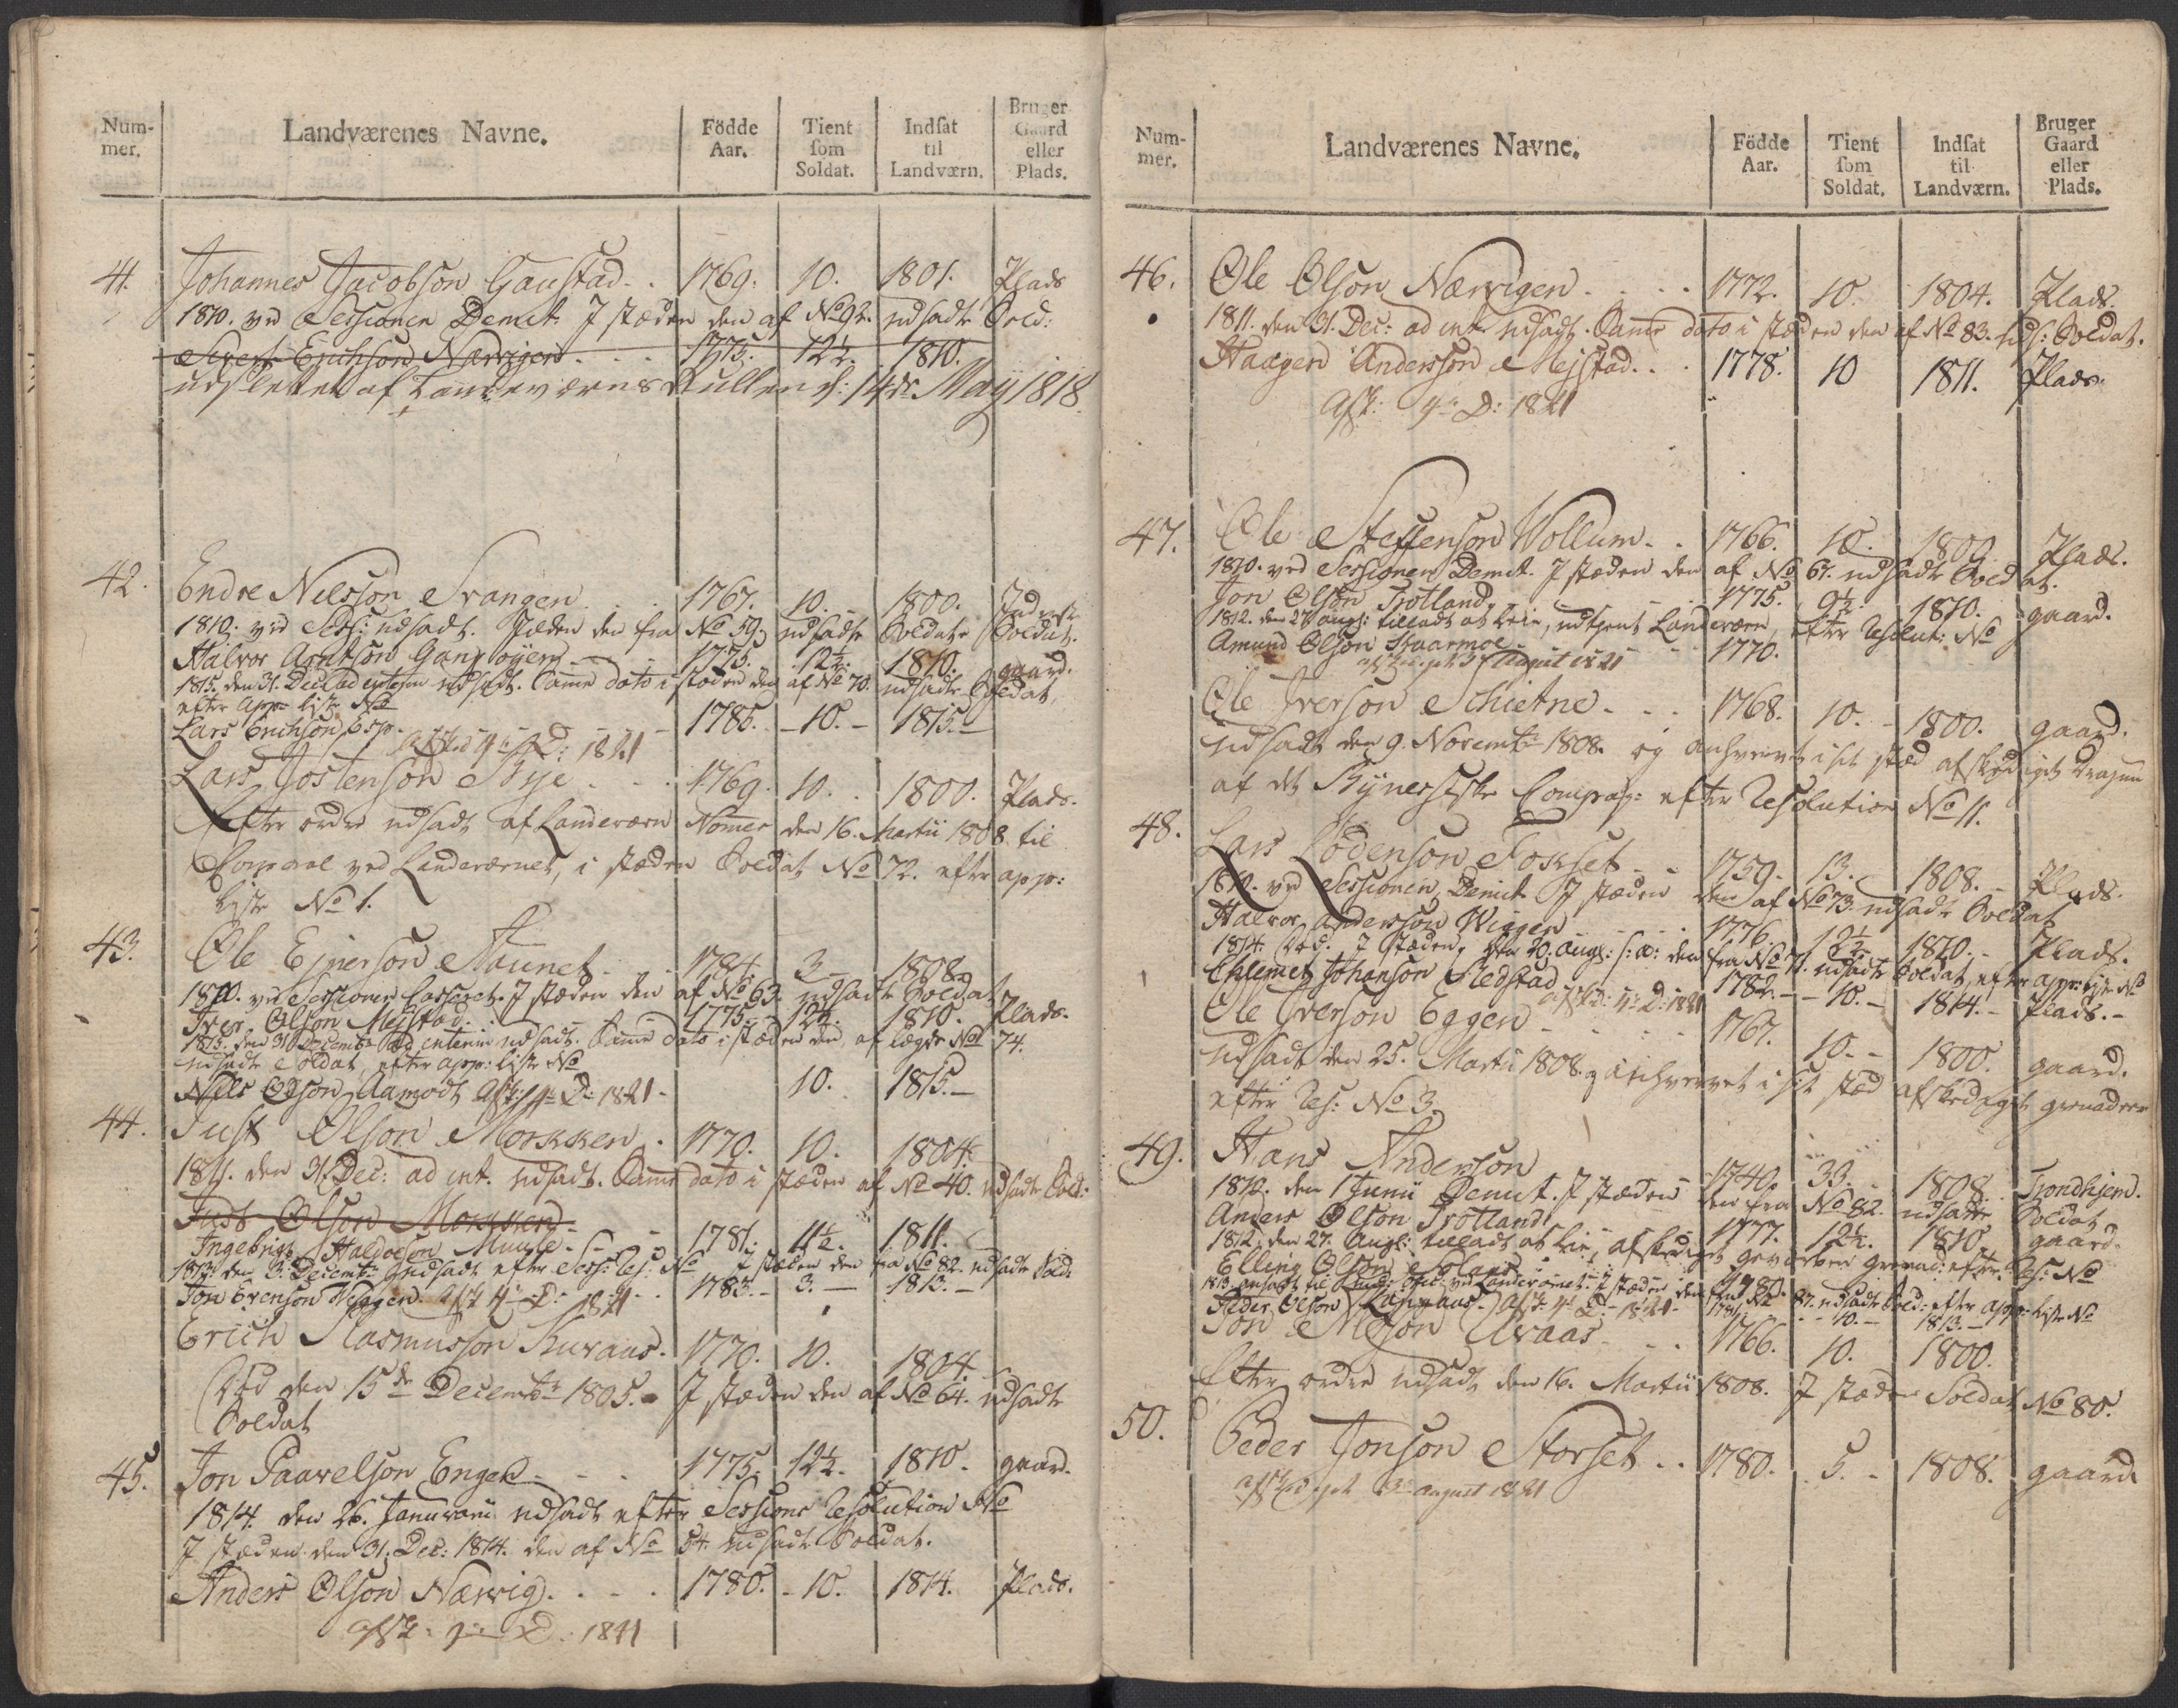 Num-
mer.
Landværenes Navne.
Födde
Aar.
Tient
som
Soldat.
Indsat
til
Landværn.
Bruger
Gaard
eller
Plads.
41. Johannes Jacobson Gaustad. . 1769. 10. 1801. Plads
1810. ved Sessionen Demit. J stæden den af No 92. udsadte Sold:
Sivert Erichson Nærvigen . . . 1775. 12½. 1810.
udslettet af Landeværns Rullen d: 14de May 1818
42. Endre Nilsson Svangen . . 1767. 10. 1800. Inderste
1810. ved Sess: udsadt. Stæden den fra No 59. udsadte Soldate Soldat.
Halvor Arntson Gangsøyen 1775. 12½. 1810. gaard.
1815. den 31. Dec: ad interim udsadt. Samme dato i stæden den af No 70. udsadte Soldat,
efter app: liste No
Lars Erichson Esp. 1785. - 10. - 1815. -
Afsked 4de D: 1821
Lars Jostenson Rye . . . 1769. 10. 1800. Plads.
Efter ordre udsadt af Landeværn Nomer den 16. Martii 1808. til
Corporal ved Landeværnet, i stæden Soldat No 72. efter app:
liste No 1.
43. Ole Ejnerson Aunet. . 1784. 3 1808.
1810. ved Sessionen Casseret. J stæden den af No 63. udsadte Soldat
Iver Olson Mejstad. 1775. 12½. 1810. Plads.
1815. den 31 Decembr ad interim udsadt. Samme dato i stæden den af lægde No 74.
udsadte Soldat, efter app: liste No
Nills Olson Aamodt Afsk: 4de D: 1821 - 10. 1815. -
44. Just Olson Morkken . 1770. 10. 1804.
1811. den 31 Dec: ad int. udsadt. Samme dato i stæden af No 40. udsadte Sold:
Just Olson Morkken
Ingebrigt Haldosen 1781. 11½. 1811.
1813. den 3. Decembr udsadt efter Sess: Res: No J stæden den fra No 82. udsadte Sold:
Jon Evenson Wiggen. Afsk 4de D: 1821 1783. - 3. - 1813. -
Erich Rasmusson Kuraas. 1770. 10. 1804.
Død den 15de Decembr 1805. J stæden den af No 64. udsadte
Soldat
45. Jon Paavelson Engen . . . 1775. 12½. 1810. gaard.
1814. den 26. Januarii udsadt efter Sessions Resolution No
J stæden den 31. Dec: 1814. den af No 54 udsadte Soldat.
Anders Olson Nærvig. . . . 1780. - 10. 1814. Plads.
Afsk: 4de D: 1821
Num-
mer.
Landværenes Navne.
Födde
Aar.
Tient
som
Soldat.
Indsat
til
Landværn.
Bruger
Gaard
eller
Plads.
46. Ole Olson Nærvigen . . . . 1772. 10. 1804. Plads.
1811. den 31. Dec: ad int. udsadt. Samme dato i stæden den af No 83. uds: Soldat.
Haagen Andersson Mejstad. . . 1778. 10 1811. Plads.
Afsk: 4de D: 1821
47. Ole Steffenson Wollum. . 1766. 10. 1800. Plads.
1810. ved Sessionen Demit. J stæden den af No 67. udsadte Soldat.
Jon Olson Trotland. 1775. 9½. 1810. gaard.
1812. den 27 aug: tilladt at leie, udtient Landeværn, efter Resolut: No
Amund Olson Skaarmoe 1770.
afskediget 3de August 1821
Ole Iverson Schietne . . . 1768. 10. - 1800. gaard.
udsadt den 9. Novembr 1808. og anhvervet i sit stæd afskediget Dragun
af det Bynesiske Compag: efter Resolution No 11.
48. Lars Lodenson Foxset . . 1759. 13. 1808. - Plads.
1810. ved Sessionen Demit. J stæden den af No 73. udsadte Soldat
Halvor Anderson Wiggen 1776. 12½. 1810. - Plads.
1814. Død. J stæden, den 20. Aug: s: a: den fra No 71. udsadte Soldat, efter app: liste No
Chlemet Johanson Fledstad 1782. - 10. - 1814. - Plads. -
Afsk: 4de D: 1821
Ole Iverson Eggen . . . . 1767. 10. - 1800. gaard.
udsadt den 25. Martii 1808. og anhvervet i sit stæd afskediget grenadeer
efter Res: No 3.
49. Hans Anderson 1740. 33. 1808. Trondhiem.
1810. den 1 Junii Demit. J stæden den fra No 82. udsadte Soldat
Anders Olson Trotland 1777. 12½. 1810 gaard.
1812. den 27. Aug: tilladt at leie, afskediget geworben grenad: efter Res: No
Elling Olson 1780.
1813. ansadt til Und: Ofic: ved Landeværnet. J stæden den fra No 87. udsadte Sold: efter app: liste No
Peder Olson Langaas. Afsk 4de D: 1821 - 10. - 1813. -
Jon Nilson Aaas . . . 1766. 10. 1800.
Efter ordre udsadt den 16. Martii 1808. J stæden Soldat No 80.
50. Peder Jonson Storset . . 1780. 5. - 1808. gaard.
afskediget 3de august 1821